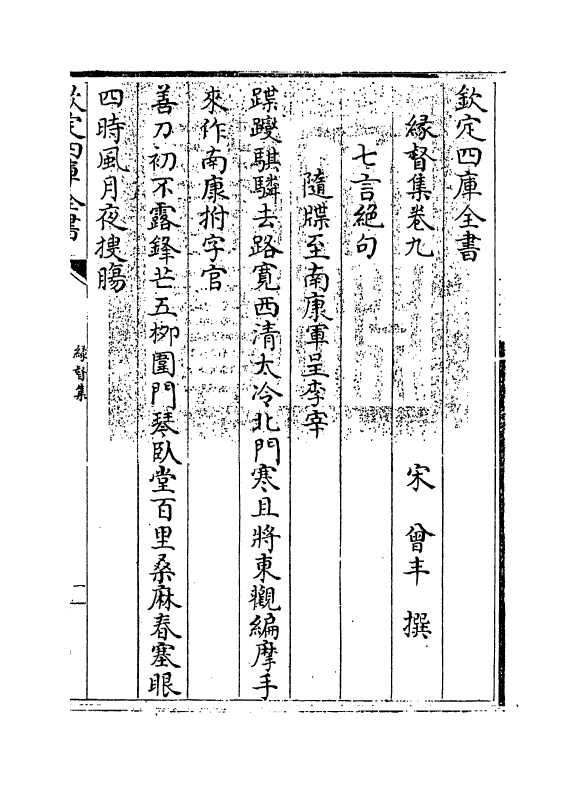 欽定四庫全書
緣督集卷九
宋 曾丰 撰
七言絶句
隨牒至南康軍呈李宰
蹀躞騏驎去路寛西清太冷北門寒且將東觀編摩手
來作南康拊字官
善刀初不露鋒芒五栁圍門琴臥堂百里桑麻春塞眼
四時風月夜搜膓
欽定四庫全書
緣督集
一